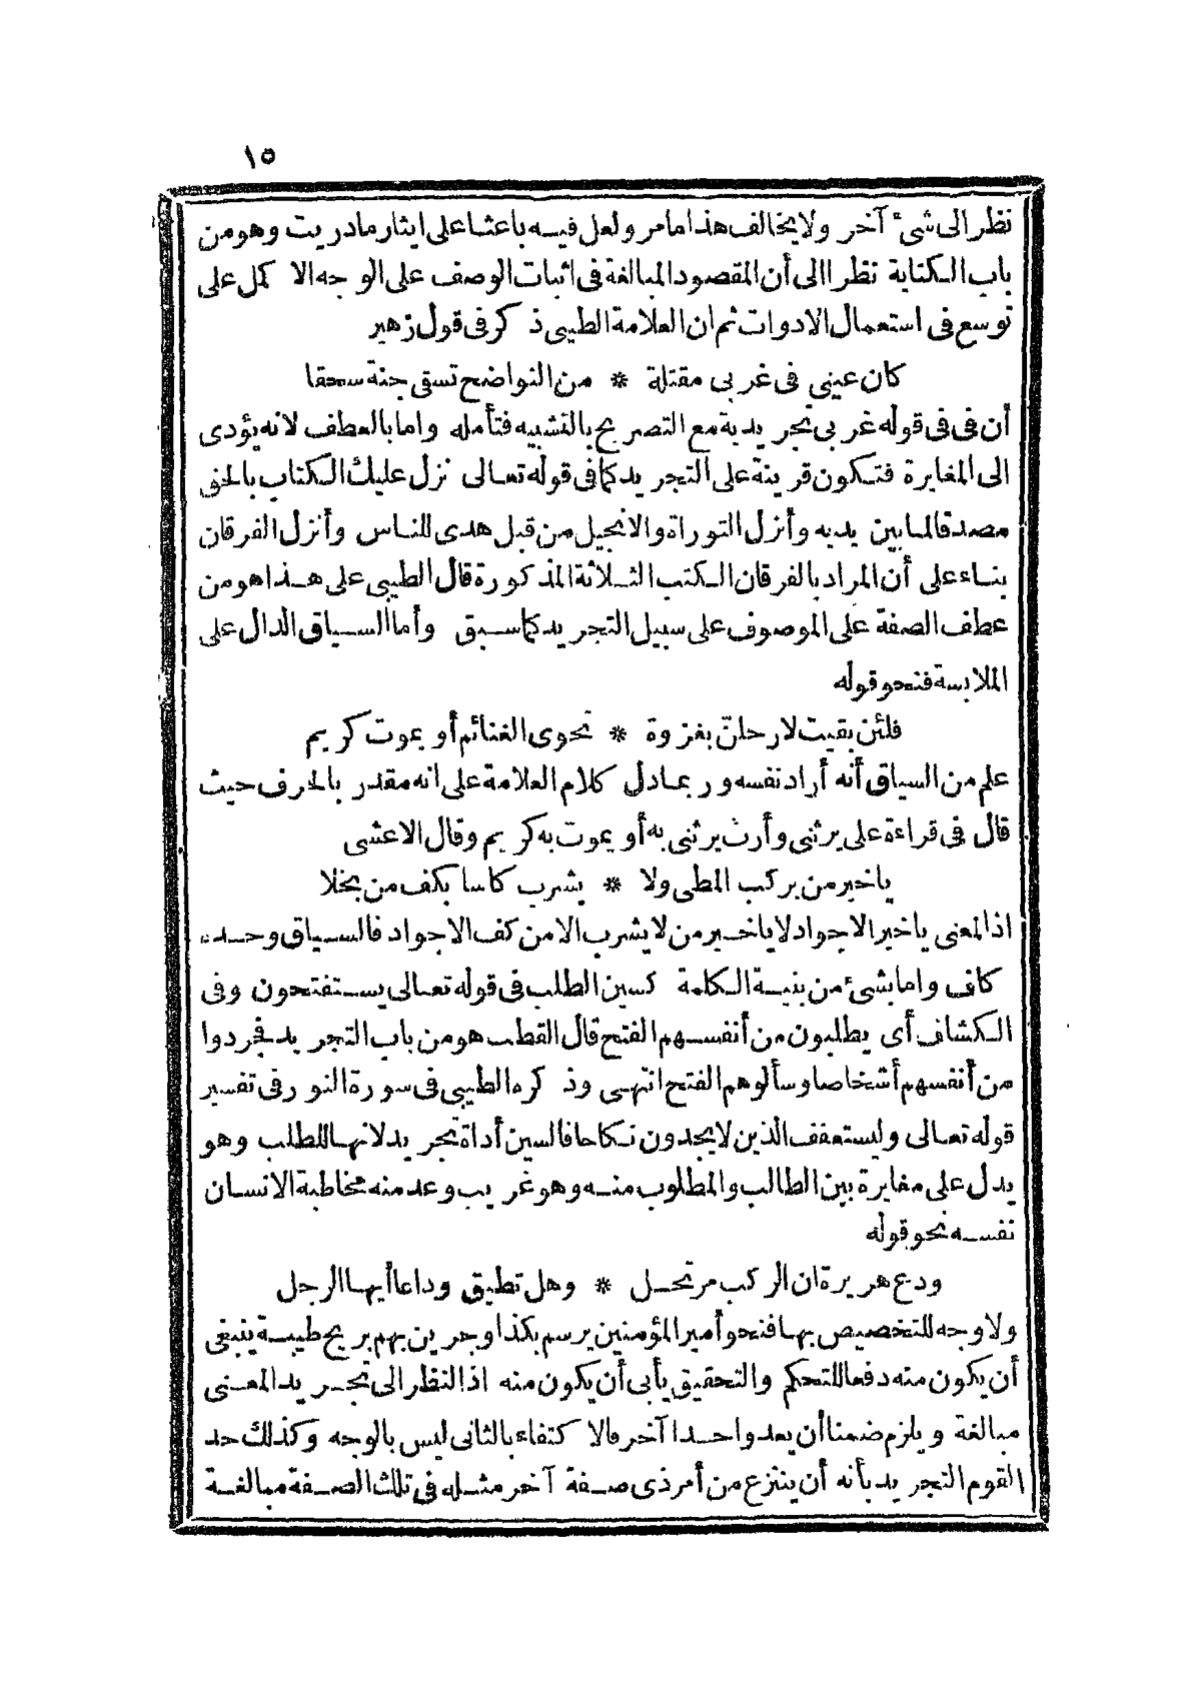 ١٥
نظر الى شئ آخر ولا يخالف هذا ما مر ولعل فيه باعثا على ايثار ما دريت وهو من
باب الكناية نظرا الى أن المقصود المبالغة فى اثبات الوصف على الوجه الا كمل على
توسع فى استعمال الادوات ثم ان العلامة الطيبى ذ كر فى قول زهير
كان عينى فى غربى مقتلة * من النواضح تسقى جنة سحقا
أن فى فى قوله غربى تجريدية مع التصريح بالتشبيه فتأمله واما بالعطف لانه يؤدى
الى المغايرة فتكون قرينة على التجريد كما فى قوله تعالى نزل عليك الكتاب بالحق
مصدقا لما بين يديه وأنزل التوراة والانجيل من قبل هدى للناس وأنزل الفرقان
بناء على أن المراد بالفرقان الكتب الثلاثة المذكورة قال الطيبى على هذا هو من
عطف الصفة على الموصوف على سبيل التجريد كما سبق وأما السياق الدال على
الملابسة فنحو قوله
فلئن بقيت لارحلنّ بغزوة * تحوى الغنائم أو يموت كريم
علم من السياق أنه أراد نفسه وربما دل كلام العلامة على انه مقدر بالحرف حيث
قال فى قراءة على يرثنى وأرث يرثنى به أو يموت به كريم وقال الاعشى
يا خير من يركب المطى ولا * يشرب كاسا بكف من بخلا
اذ المعنى يا خير الاجواد لا يا خير من لا يشرب الا من كف الاجواد فالسياق وحده
كاف واما بشئ من بنية الكلمة كسين الطلب فى قوله تعالى يستفتحون وفى
الكشاف أى يطلبون من أنفسهم الفتح قال القطب هو من باب التجريد فجردوا
من أنفسهم أشخاصا وسألوهم الفتح انتهى وذ كره الطيبى فى سورة النور فى تفسير
قوله تعالى وليستعفف الذين لا يجدون نكاحا فالسين أداة تجريد لانها للطلب وهو
يدل على مغايرة بين الطالب والمطلوب منه وهو غريب وعد منه مخاطبة الانسان
نفسه نحو قوله
ودع هريرة ان الركب مرتحل * وهل تطيق وداعا أيها الرجل
ولا وجه للتخصيص بها فنحو أمير المؤمنين يرسم بكذا وجرين بهم بريح طيبة ينبغى
أن يكون منه دفعا للتحكم والتحقيق يأبى أن يكون منه اذ النظر الى تجريد المعنى
مبالغة ويلزم ضمنا أن يعد واحدا آخر فالا كتفاء بالثانى ليس بالوجه وكذلك حد
القوم التجريد بأنه أن ينتزع من أمر ذى صفة آخر مثله فى تلك الصفة مبالغة